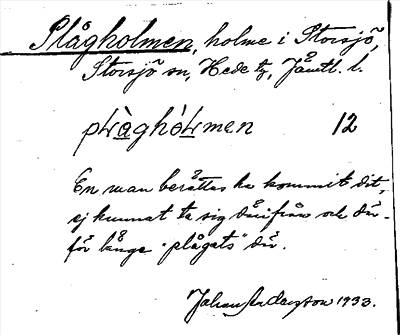 Plågholmen, holme i Storsjö,
Storsjö sn, Hede tg, Jämtl. l.
pLàghòLmen 12
En man berättas ha kommit dit,
ej kunnat ta sig därifrån och där-
för länge "plågats" där.
Johan Andersson 1933.